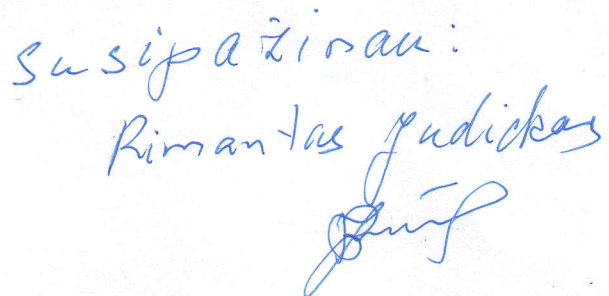 Susipažinau:
Rimantas Judickas